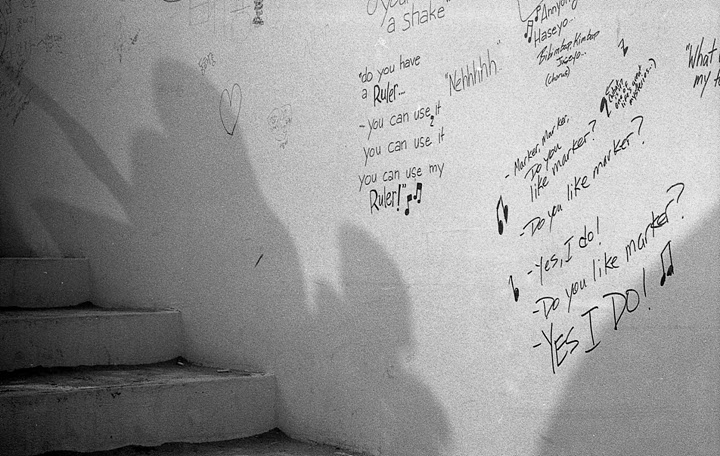 your
a shake"
"do you have
a Ruler...
- you can use it
you can use it
you can use my
Ruler!"
"Nehhhhh"
Annyong
Haseyo...
Bibimbap, Kimbap
(chorus)
- Marker, Marker,
Do you
like marker?
- Do you like marker?
- Yes, I do!
- Do you like marker?
- YES I DO!
"What
my